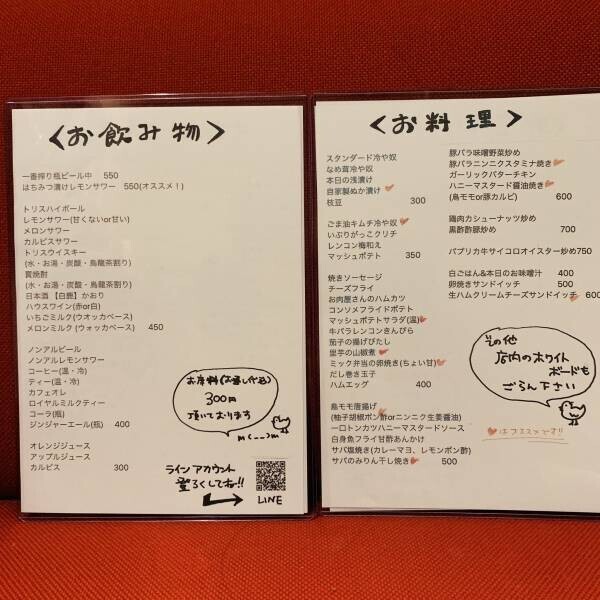 <お飲み物>
一番搾り瓶ビール中 550
はちみつ漬けレモンサワー 550(オススメ!)
トリスハイボール
レモンサワー(甘くないor甘い)
メロンサワー
カルピスサワー
トリスウイスキー
(水・お湯・炭酸・烏龍茶割り)
賣焼酎
(水・お湯・炭酸・烏龍茶割り)
日本酒【白鹿】かおり
ハウスワイン(赤or白)
いちごミルク(ウオッカベース)
メロンミルク(ウォッカベース) 450
ノンアルビール
ノンアルレモンサワー
コーヒー(温・冷)
ティー(温・冷)
カフェオレ
ロイヤルミルクティー
コーラ(瓶)
ジンジャーエール(瓶) 400
オレンジジュース
アップルジュース
カルピス 300
お席料(お通し代込)
300円
頂いております
m(__)m
ラインアカウント
登ろくしてね!!
LINE
<お料理>
スタンダード冷や奴
なめ茸冷や奴
本日の浅漬け
自家製ぬか漬け
枝豆 300
ごま油キムチ冷や奴
いぶりがっこクリチ
レンコン梅和え
マッシュポテト 350
焼きソーセージ
チーズフライ
お肉屋さんのハムカツ
コンソメフライドポテト
マッシュポテトサラダ(温)
牛バラレンコンきんぴら
茄子の揚げびたし
里芋の山椒煮
ミック弁当の卵焼き(ちょい甘)
だし巻き玉子
ハムエッグ 400
鳥モモ唐揚げ
(柚子胡椒ポン酢orニンニク生姜醤油)
一口トンカツハニーマスタードソース
白身魚フライ甘酢あんかけ
サバ塩焼き(カレーマヨ、レモンポン酢)
サバのみりん干し焼き 500
豚バラ味噌野菜炒め
豚バラニンニクスタミナ焼き
ガーリックバターチキン
ハニーマスタード醤油焼き
(鳥モモor豚カルビ) 600
鶏肉カシューナッツ炒め
黒酢酢豚炒め 700
パプリカ牛サイコロオイスター炒め750
白ごはん&本日のお味噌汁 400
卵焼きサンドイッチ 500
生ハムクリームチーズサンドイッチ 600
その他
店内のホワイト
ボードも
ごらん下さい
はオススメです!!